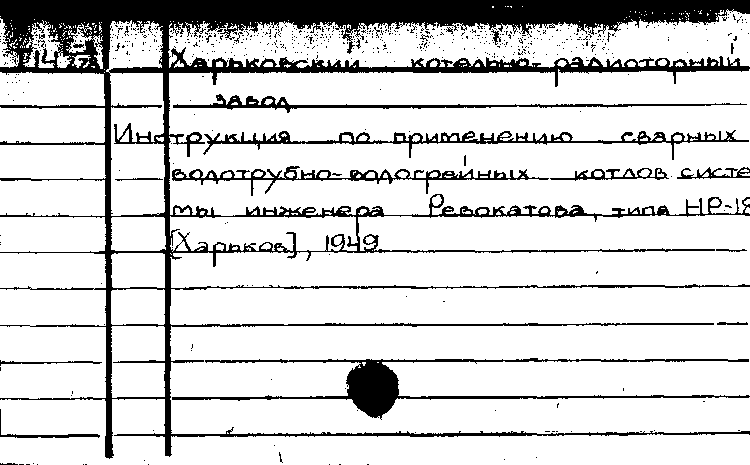 Харьковский котельно-радиоторный
завод
Инструкция по применению сварных
водотрубно-водогрейных котлов систе
мы инженера Ревокатова, типа НР-18
[Харьков], 1949